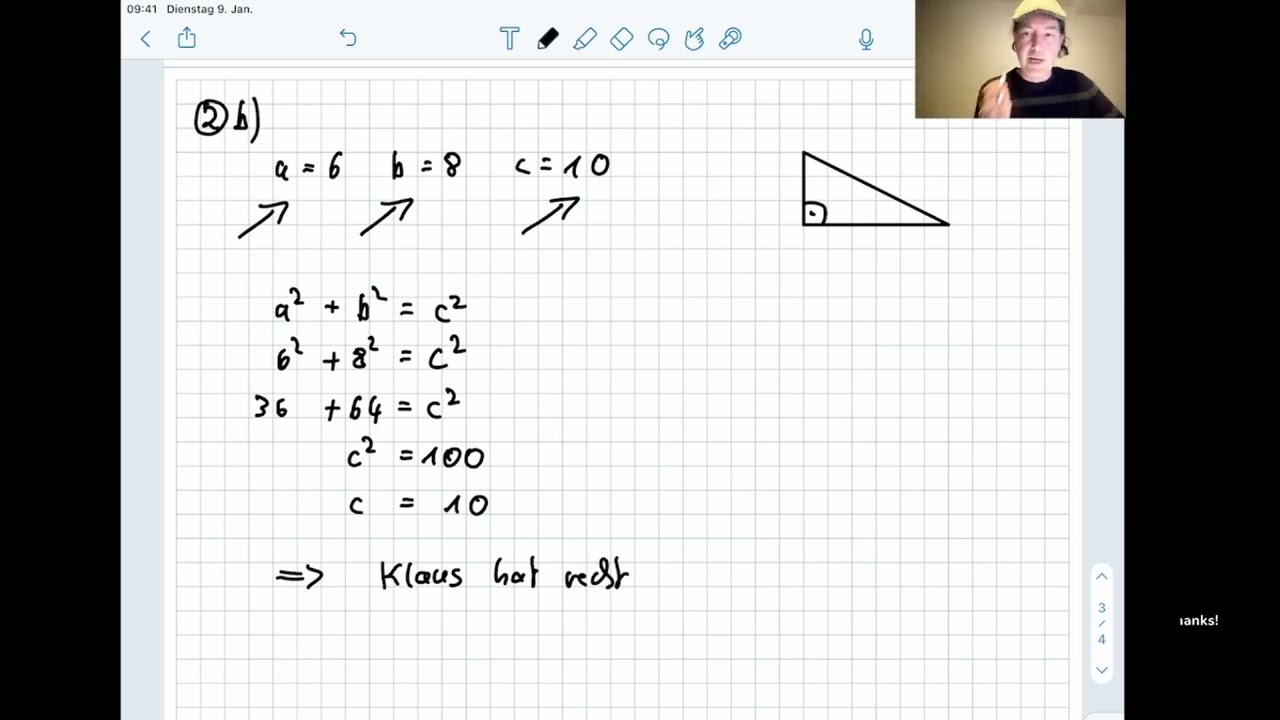 09:41 Dienstag 9. Jan.
T
② b)
a = 6 b = 8 c = 10
a² + b² = c²
6² + 8² = c²
36 + 64 = c²
c² = 100
c = 10
=> Klaus hat recht
3
/
4
hanks!